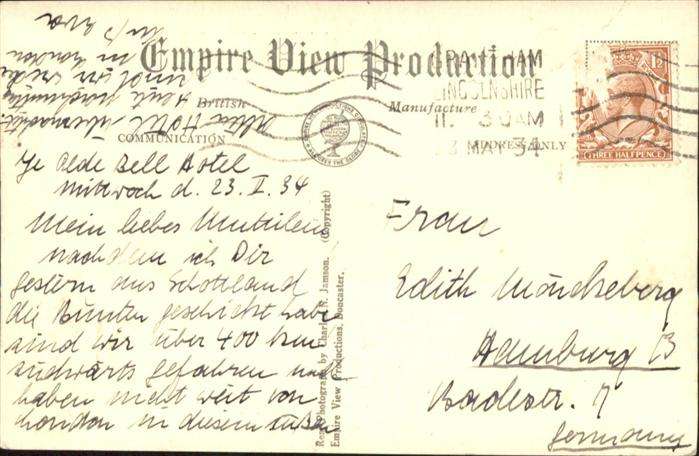 Empire View Production
British Manufacture
COMMUNICATION
ADDRESS ONLY
LINCOLNSHIRE
11. 30 AM
3 MAY 34
THREE HALFPENCE
Ye Olde Bell Hotel
Mittwoch d. 23. I. 34
Mein liebes Muttilein
nachdem ich Dir
gestern aus Schottland
die Bunten geschickt habe
sind wir über 400 km
südwärts gefahren und
haben nicht weit von
London in diesem süßen
alten Hotel übernachtet
in London
Real Photographs by Charles H. Jamson. (Copyright)
Empire View Productions, Doncaster.
Frau
Edith Mönckeberg
Hamburg 13
Badestr. 7
Germany